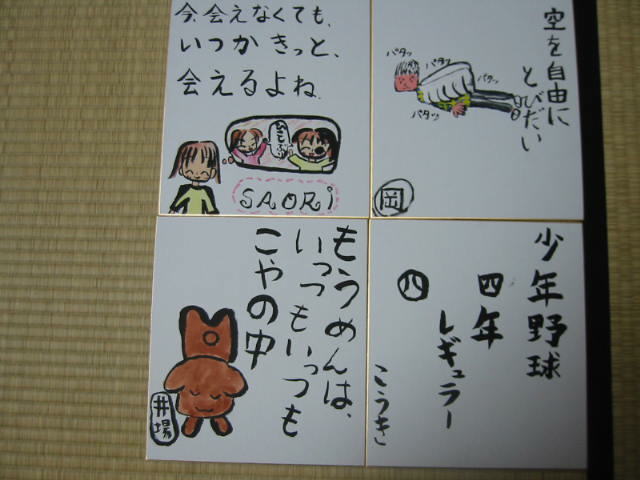 今、会えなくても、
いつかきっと、
会えるよね。
SAORi
空を自由に
とびたい
パタッ
パタッ
パタッ
パタッ
岡
もうめんは、
いっつもいっつも
こやの中
井場
少年野球
四年
レギュラー
八
こうき